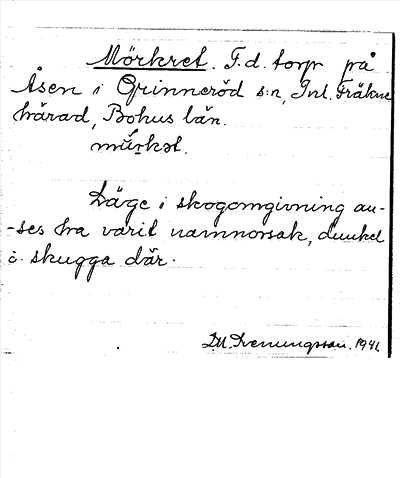 Mörkret. F.d. torp på
Åsen i Grinneröd s:n, Inl. Fräkne
härad, Bohus län.
mŭrkət.
Läge i skogomgivning an-
-ses ha varit namnorsak, dunkel
o. skugga där.
1941